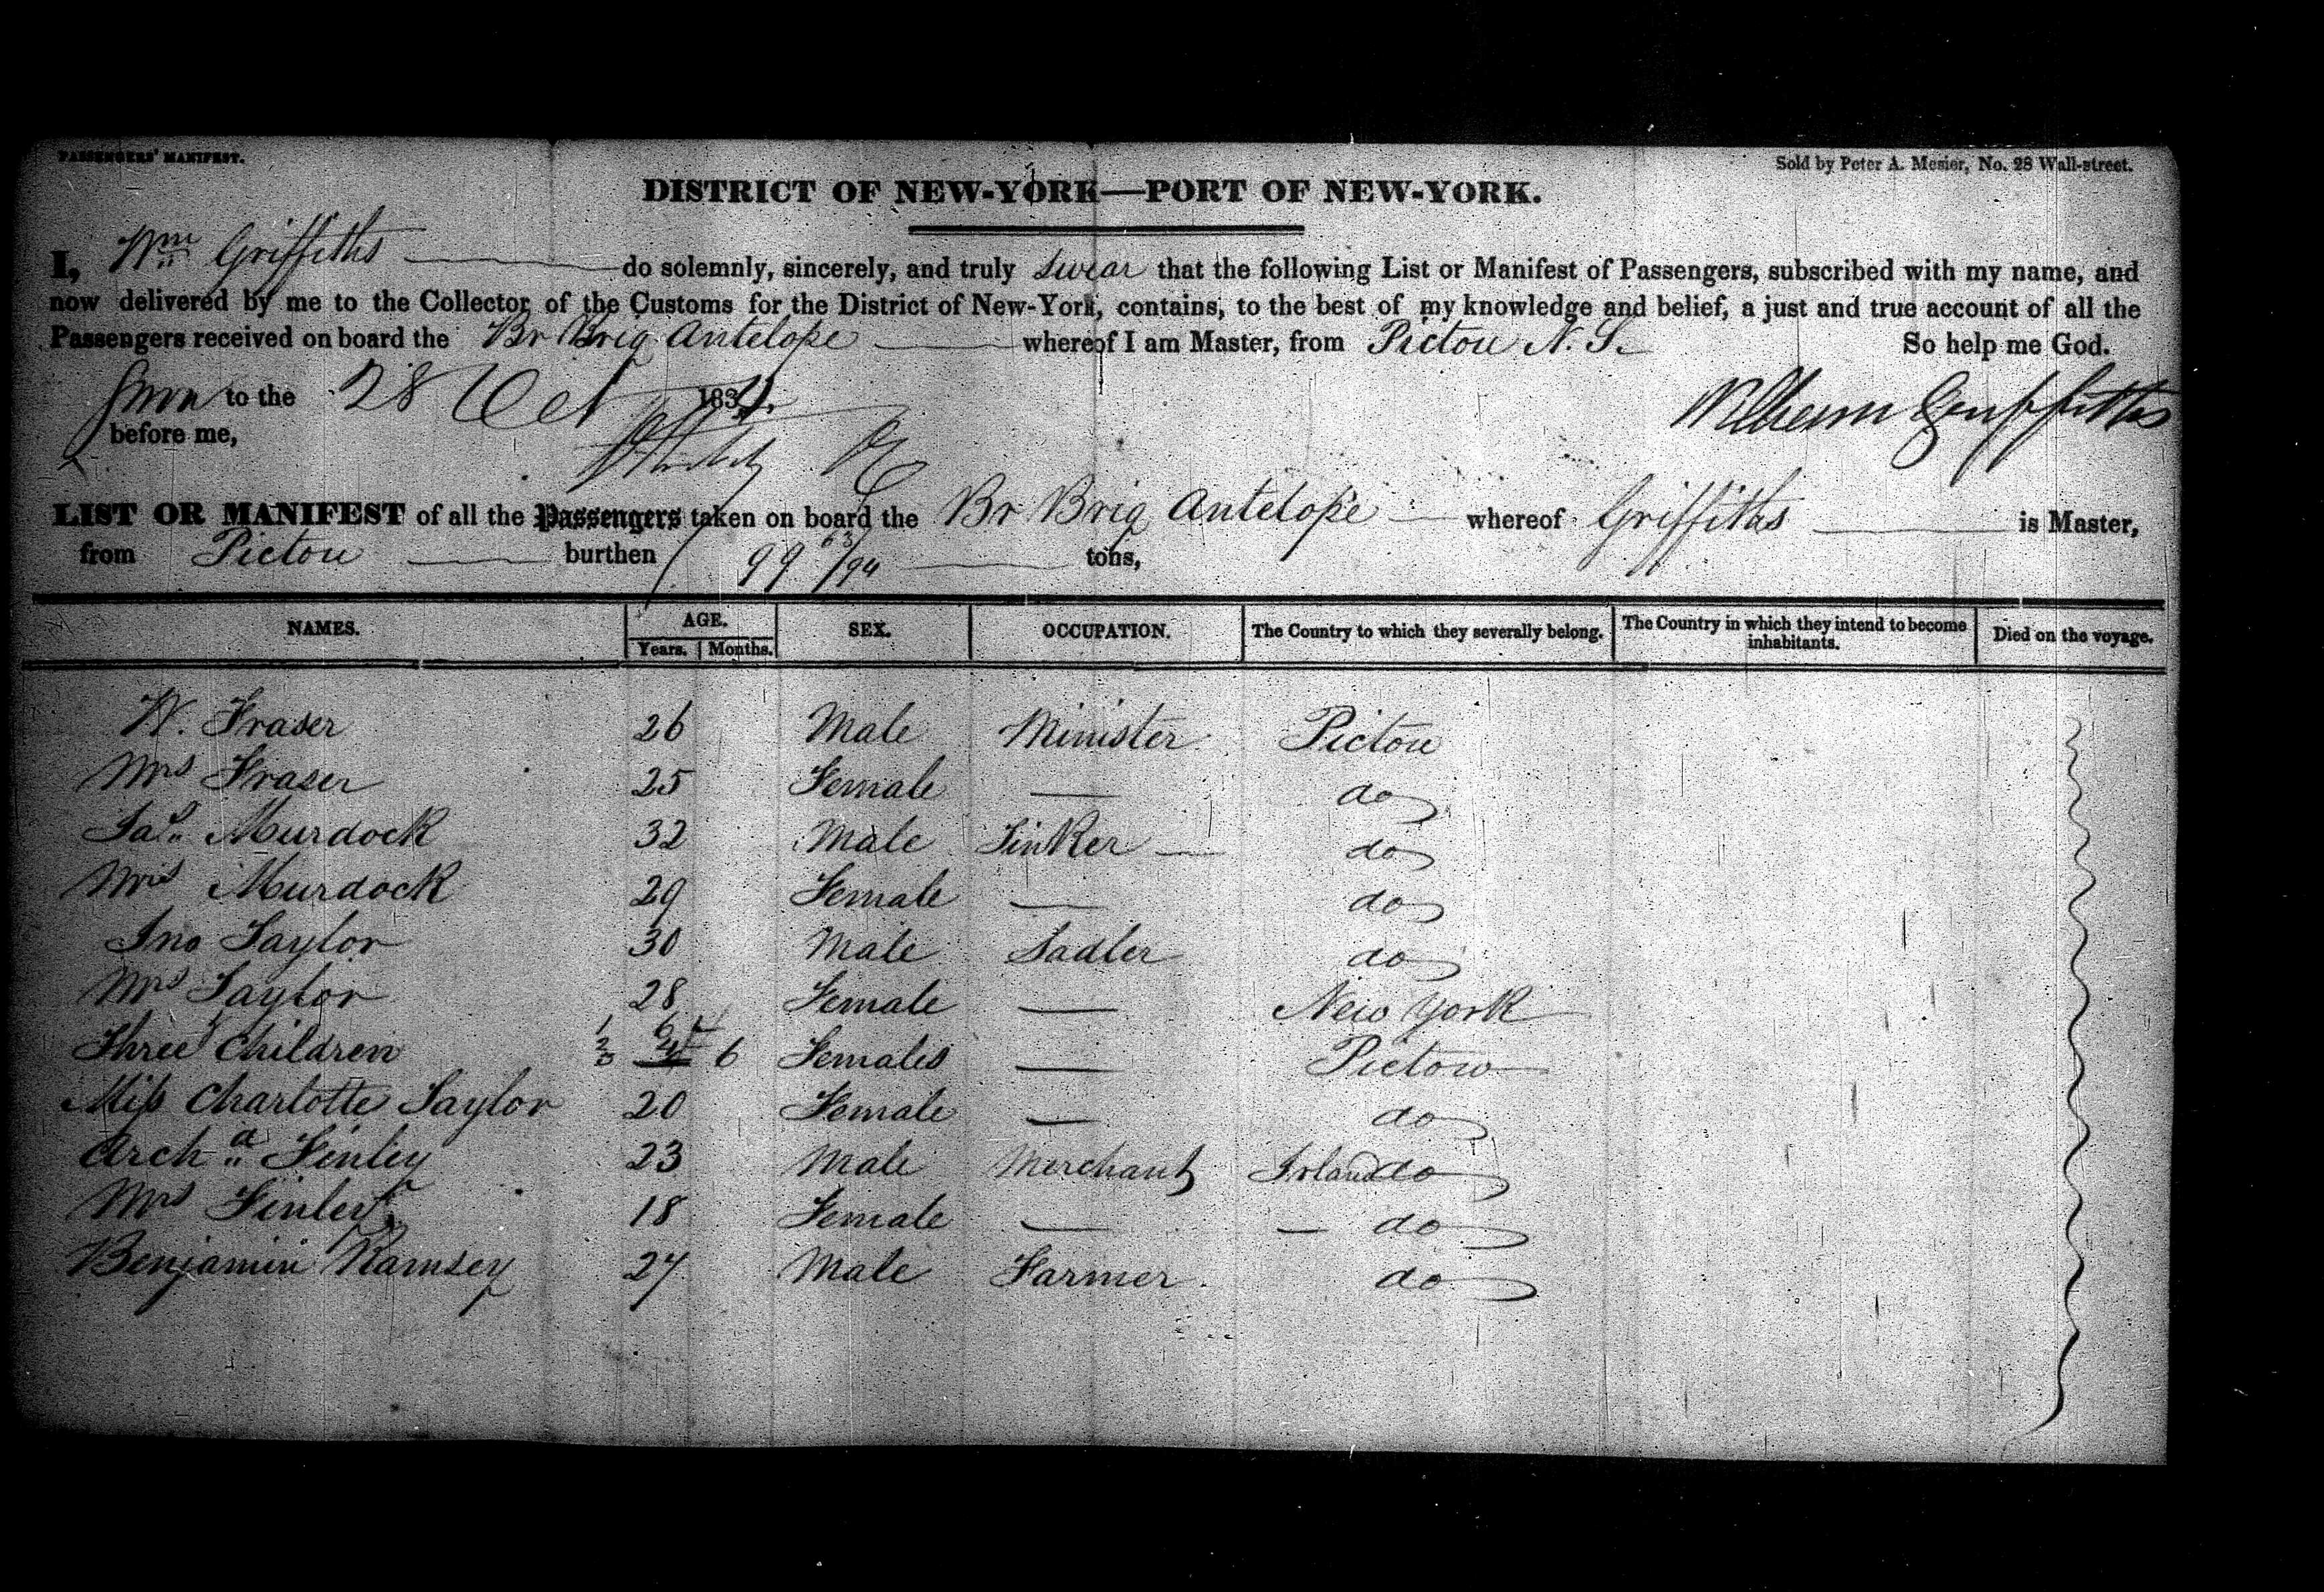 PASSENGERS' MANIFEST.
Sold by Peter A. Mesier, No. 28 Wall-street.
DISTRICT OF NEW-YORK—PORT OF NEW-YORK.
I, Wm Griffiths do solemnly, sincerely, and truly Swear that the following List or Manifest of Passengers, subscribed with my name, and
now delivered by me to the Collector of the Customs for the District of New-York, contains, to the best of my knowledge and belief, a just and true account of all the
Passengers received on board the Br Brig Antelope whereof I am Master, from Pictou N. S. So help me God.
Swon to the 28 Oct 183
William Griffiths
before me,
LIST OR MANIFEST of all the Passengers taken on board the Br Brig Antelope whereof Griffiths is Master,
from Pictou burthen 99 63/94 tons,
NAMES. AGE. SEX. OCCUPATION. The Country to which they severally belong. The Country in which they intend to become inhabitants. Died on the voyage.
Years. Months.
W. Fraser 26 Male Minister Pictou
Mrs Fraser 25 Female — do
Jas. Murdock 32 Male Tinker — do
Mrs Murdock 29 Female — do
Jno Taylor 30 Male Sadler do
Mrs Taylor 28 Female — New York
Three Children 1 2 3 6 4 6 Females — Pictou
Miss Charlotte Taylor 20 Female — do
Archd Finley 23 Male Merchant Irland do
Mrs Finley 18 Female — — do
Benjamin Ramsey 27 Male Farmer do